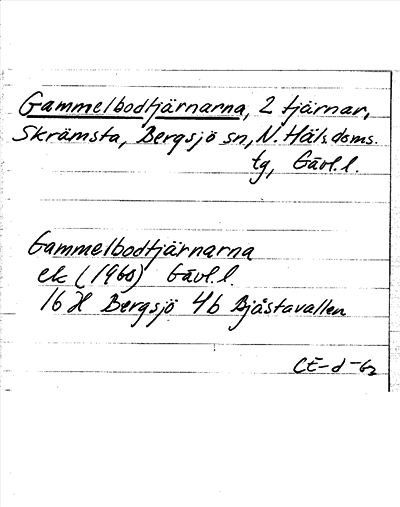 Gammelbodtjärnarna, 2 tjärnar,
Skrämsta, Bergsjö sn, N. Häls. doms.
tg, Gävl. l.
Gammelbodtjärnarna
ek (1960) Gävl. l.
16 H Bergsjö 4b Bjåstavallen
CE-d-62